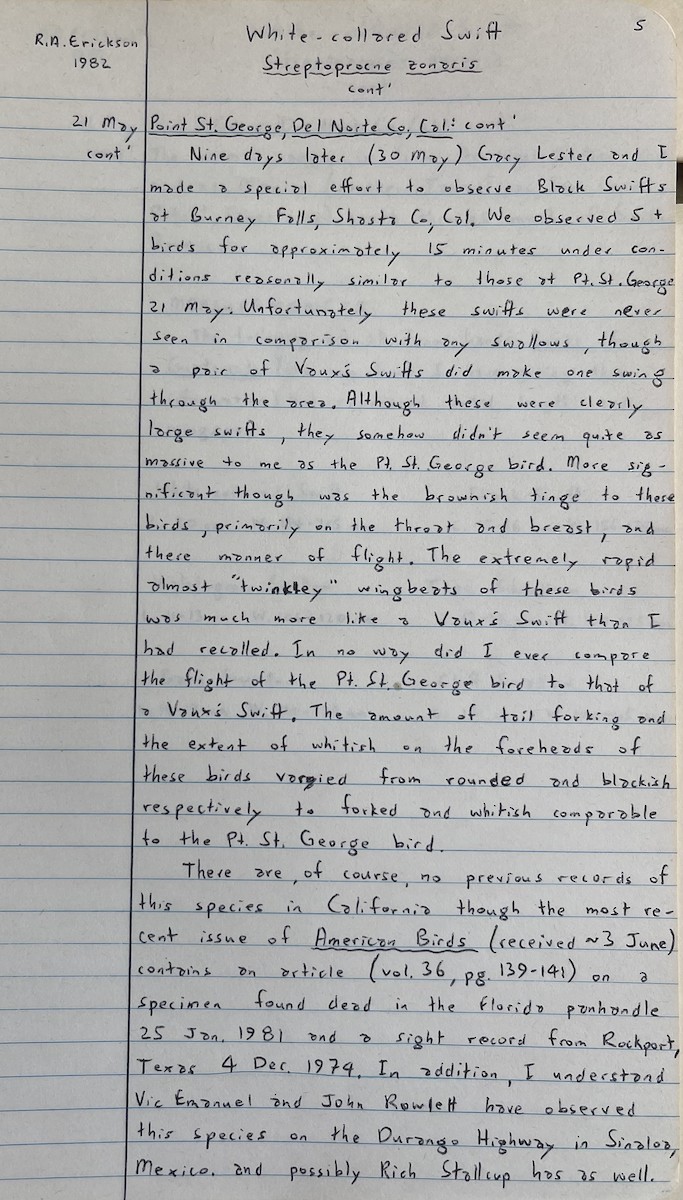 5
White-collared Swift
R.A. Erickson
1982
Streptoprocne zonaris
cont'
21 May Point St. George, Del Norte Co, Cal.: cont'
cont'
Nine days later (30 May) Gary Lester and I
made a special effort to observe Black Swifts
at Burney Falls, Shasta Co, Cal. We observed 5+
birds for approximately 15 minutes under con-
ditions reasonally similar to those at Pt. St. George
21 May. Unfortunately these swifts were never
seen in comparison with any swallows, though
a pair of Vaux's Swifts did make one swing
through the area. Although these were clearly
large swifts, they somehow didn't seem quite as
massive to me as the Pt. St. George bird. More sig-
nificant though was the brownish tinge to these
birds, primarily on the throat and breast, and
there manner of flight. The extremely rapid
almost "twinkley" wingbeats of these birds
was much more like a Vaux's Swift than I
had recalled. In no way did I ever compare
the flight of the Pt. St. George bird to that of
a Vaux's Swift. The amount of tail forking and
the extent of whitish on the foreheads of
these birds varyied from rounded and blackish
respectively to forked and whitish comparable
to the Pt. St. George bird.
There are, of course, no previous records of
this species in California though the most re-
cent issue of American Birds (received ~3 June)
contains an article (vol. 36, pg. 139-141) on a
specimen found dead in the Florida panhandle
25 Jan. 1981 and a sight record from Rockport,
Texas 4 Dec. 1974. In addition, I understand
Vic Emanuel and John Rowlett have observed
this species on the Durango Highway in Sinaloa,
Mexico. and possibly Rich Stallcup has as well.